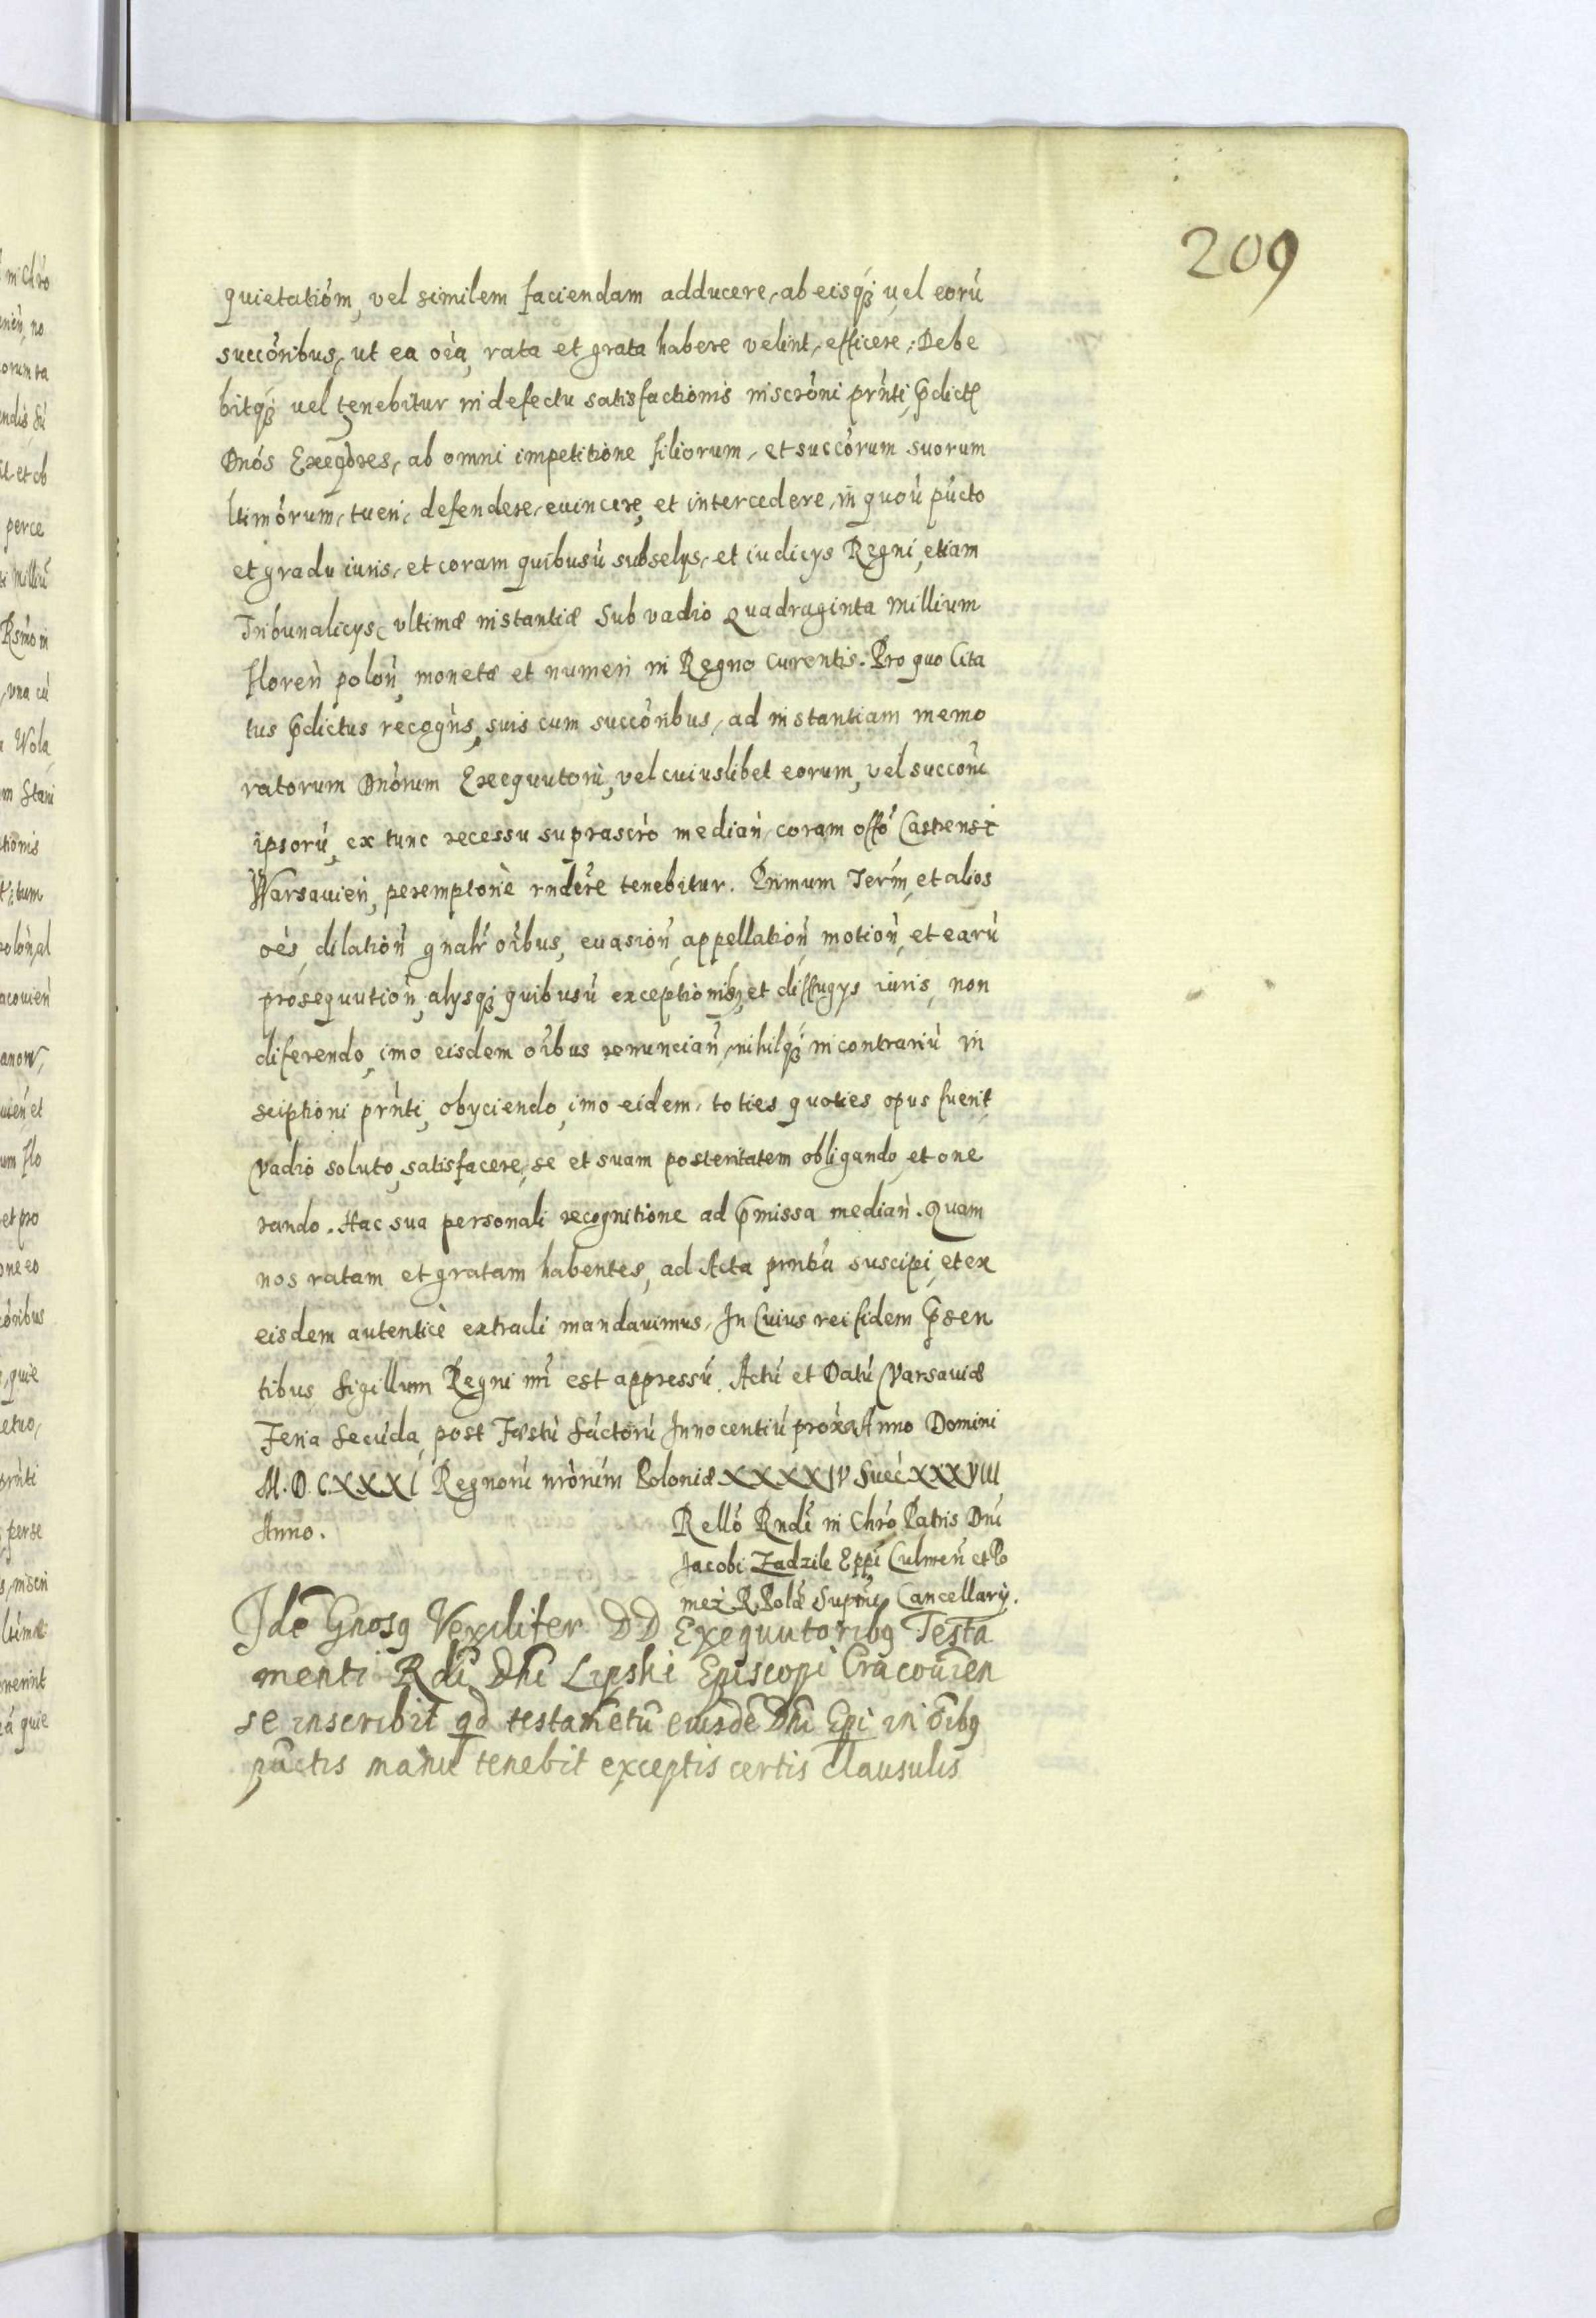 209
quietatióm, vel similem faciendam adducere, ab eisq́ꝫ uel eorú
succóribus, ut ea oía, rata et grata habere velint, efficere, Debe
bitq́ꝫ uel tenebitur in defectu satisfactionis inscróni prńti, p̃dict
Dnós Exeqóres, ab omni impetitione filiorum, et succórum suorum
ltimórum, tueri, defendere, euincere, et intercedere, in quoú púcto
et gradu iuris, et coram quibusú subselys, et iudicys Regni, etiam
Tribunalicys, vltimæ instantiæ Sub vadio Quadraginta millium
floreń poloń, monetæ et numeri in Regno Curentis. Pro quo Cita
tus p̃dictus recogńs, suis cum succóribus, ad instantiam memo
ratorum Dnórum Exequutorú, vel cuiuslibet eorum, vel succorú
ipsorú, ex tunc recessu suprascró mediań, coram offó Castrensi
Warsauień, peremptoriè rndére tenebitur. Primum Terḿ, et alios
oés, dilatioń gnalr̃ oíbus, euasioń, appellatioń, motioń, et earú
prosequutioń, alysq́ꝫ quibusú exceptionib, et diffugys iuris, non
diferendo, imo eisdem oíbus renunciań, nihilq́ꝫ in contrariú in
sciptioni prńti, obyciendo, imo eidem, toties quoties opus fuerit,
vadio soluto, satisfacere, se et suam posteritatem obligando, et one
rando. Hac sua personali recognitione ad p̃missa mediań. Quam
nos ratam et gratam habentes, ad Acta prntia suscipi, et ex
eisdem autenticè extradi mandauimus, In Cuius rei fidem p̃sen
tibus Sigillum Regni nrí est appressú. Actú et Datú Varsauiæ
Feria Secúda, post Fæstú Sáctorú Innocentiú próxa Anno Domini
M.D.C.XXXI Regnorú nrórum Poloniæ XXXXIV Sueć XXXVIII
Anno.
Relló Rndí in Chró Patris Dní
Jacobi Zadzik Eppí Culmeń et Po
meż R. Polæ Suprmi Cancellary.
Idē Gnosꝯ Vexilifer DD Exequutoribꝯ Testa
menti Rdī Dnī Lipski Episcopi Cracouien
se inscribit qd testamētū eiusdē Dnī Epi in oībꝯ
pūctis manu tenebit exceptis certis clausulis